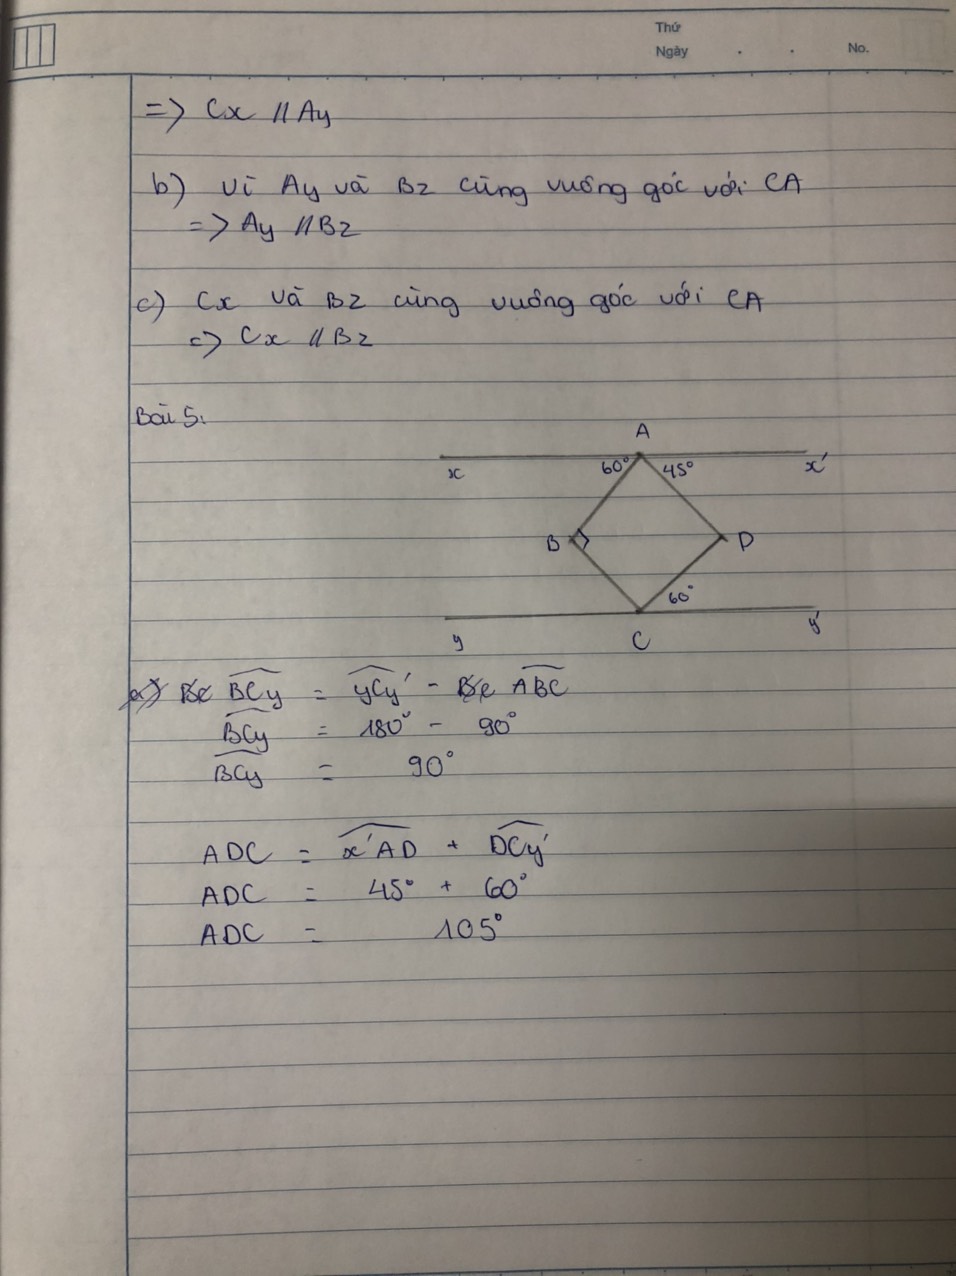 Thứ
Ngày . . No.
=> Cx // Ay
b) Vì Ay và Bz cùng vuông góc với CA
=> Ay // Bz
c) Cx và Bz cùng vuông góc với CA
=> Cx // Bz
Bài 5:
A
x 60° 45° x'
B D
60°
y C y'
a) BCy = yCy' - ABC
BCy = 180° - 90°
BCy = 90°
ADC = x'AD + DCy'
ADC = 45° + 60°
ADC = 105°